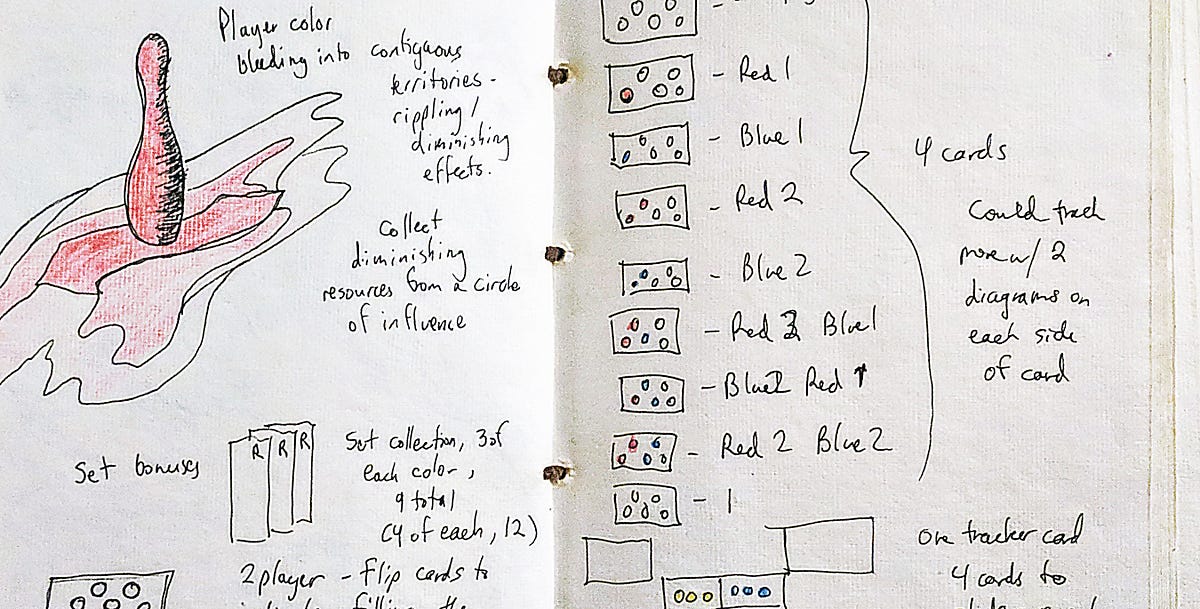 Player color
bleeding into contiguous
territories -
rippling /
diminishing
effects.
Collect
diminishing
resources from a circle
of influence
Set bonuses
R R R
Set collection, 3 of
each color,
9 total
(4 of each, 12)
2 player - Flip cards to
filling the
- Red 1
- Blue 1
- Red 2
- Blue 2
- Red 2 Blue 1
- Blue 2 Red 1
- Red 2 Blue 2
- 1
4 cards
Could track
more w/ 2
diagrams on
each side
of card
one tracker card
4 cards to